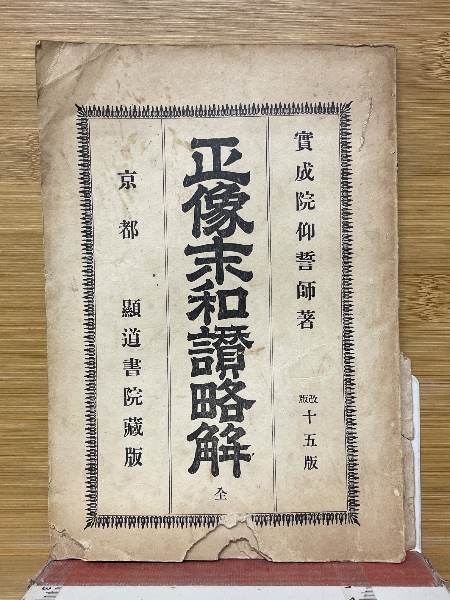 實成院仰誓師著
改版十五版
正像末和讃略解
全
京都 顯道書院藏版